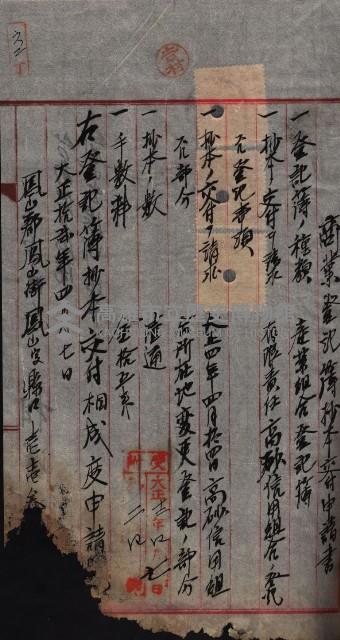 商業登記簿抄本交付申請書
一 登記簿ノ種類 産業組合登記簿
一 抄本ノ交付ヲ請求
スル登記事項 有限責任高砂信用組合ノ登記
一 抄本ノ交付ヲ請求
スル部分 大正四年四月拾四日高砂信用組
合所在地變更登記ノ部分
一 抄本ノ數 壹通
一 手數料 金拾五錢
右登記簿抄本交付相成度申請
大正拾貳年四月七日
鳳山郡鳳山街鳳山字縣口壱壱参